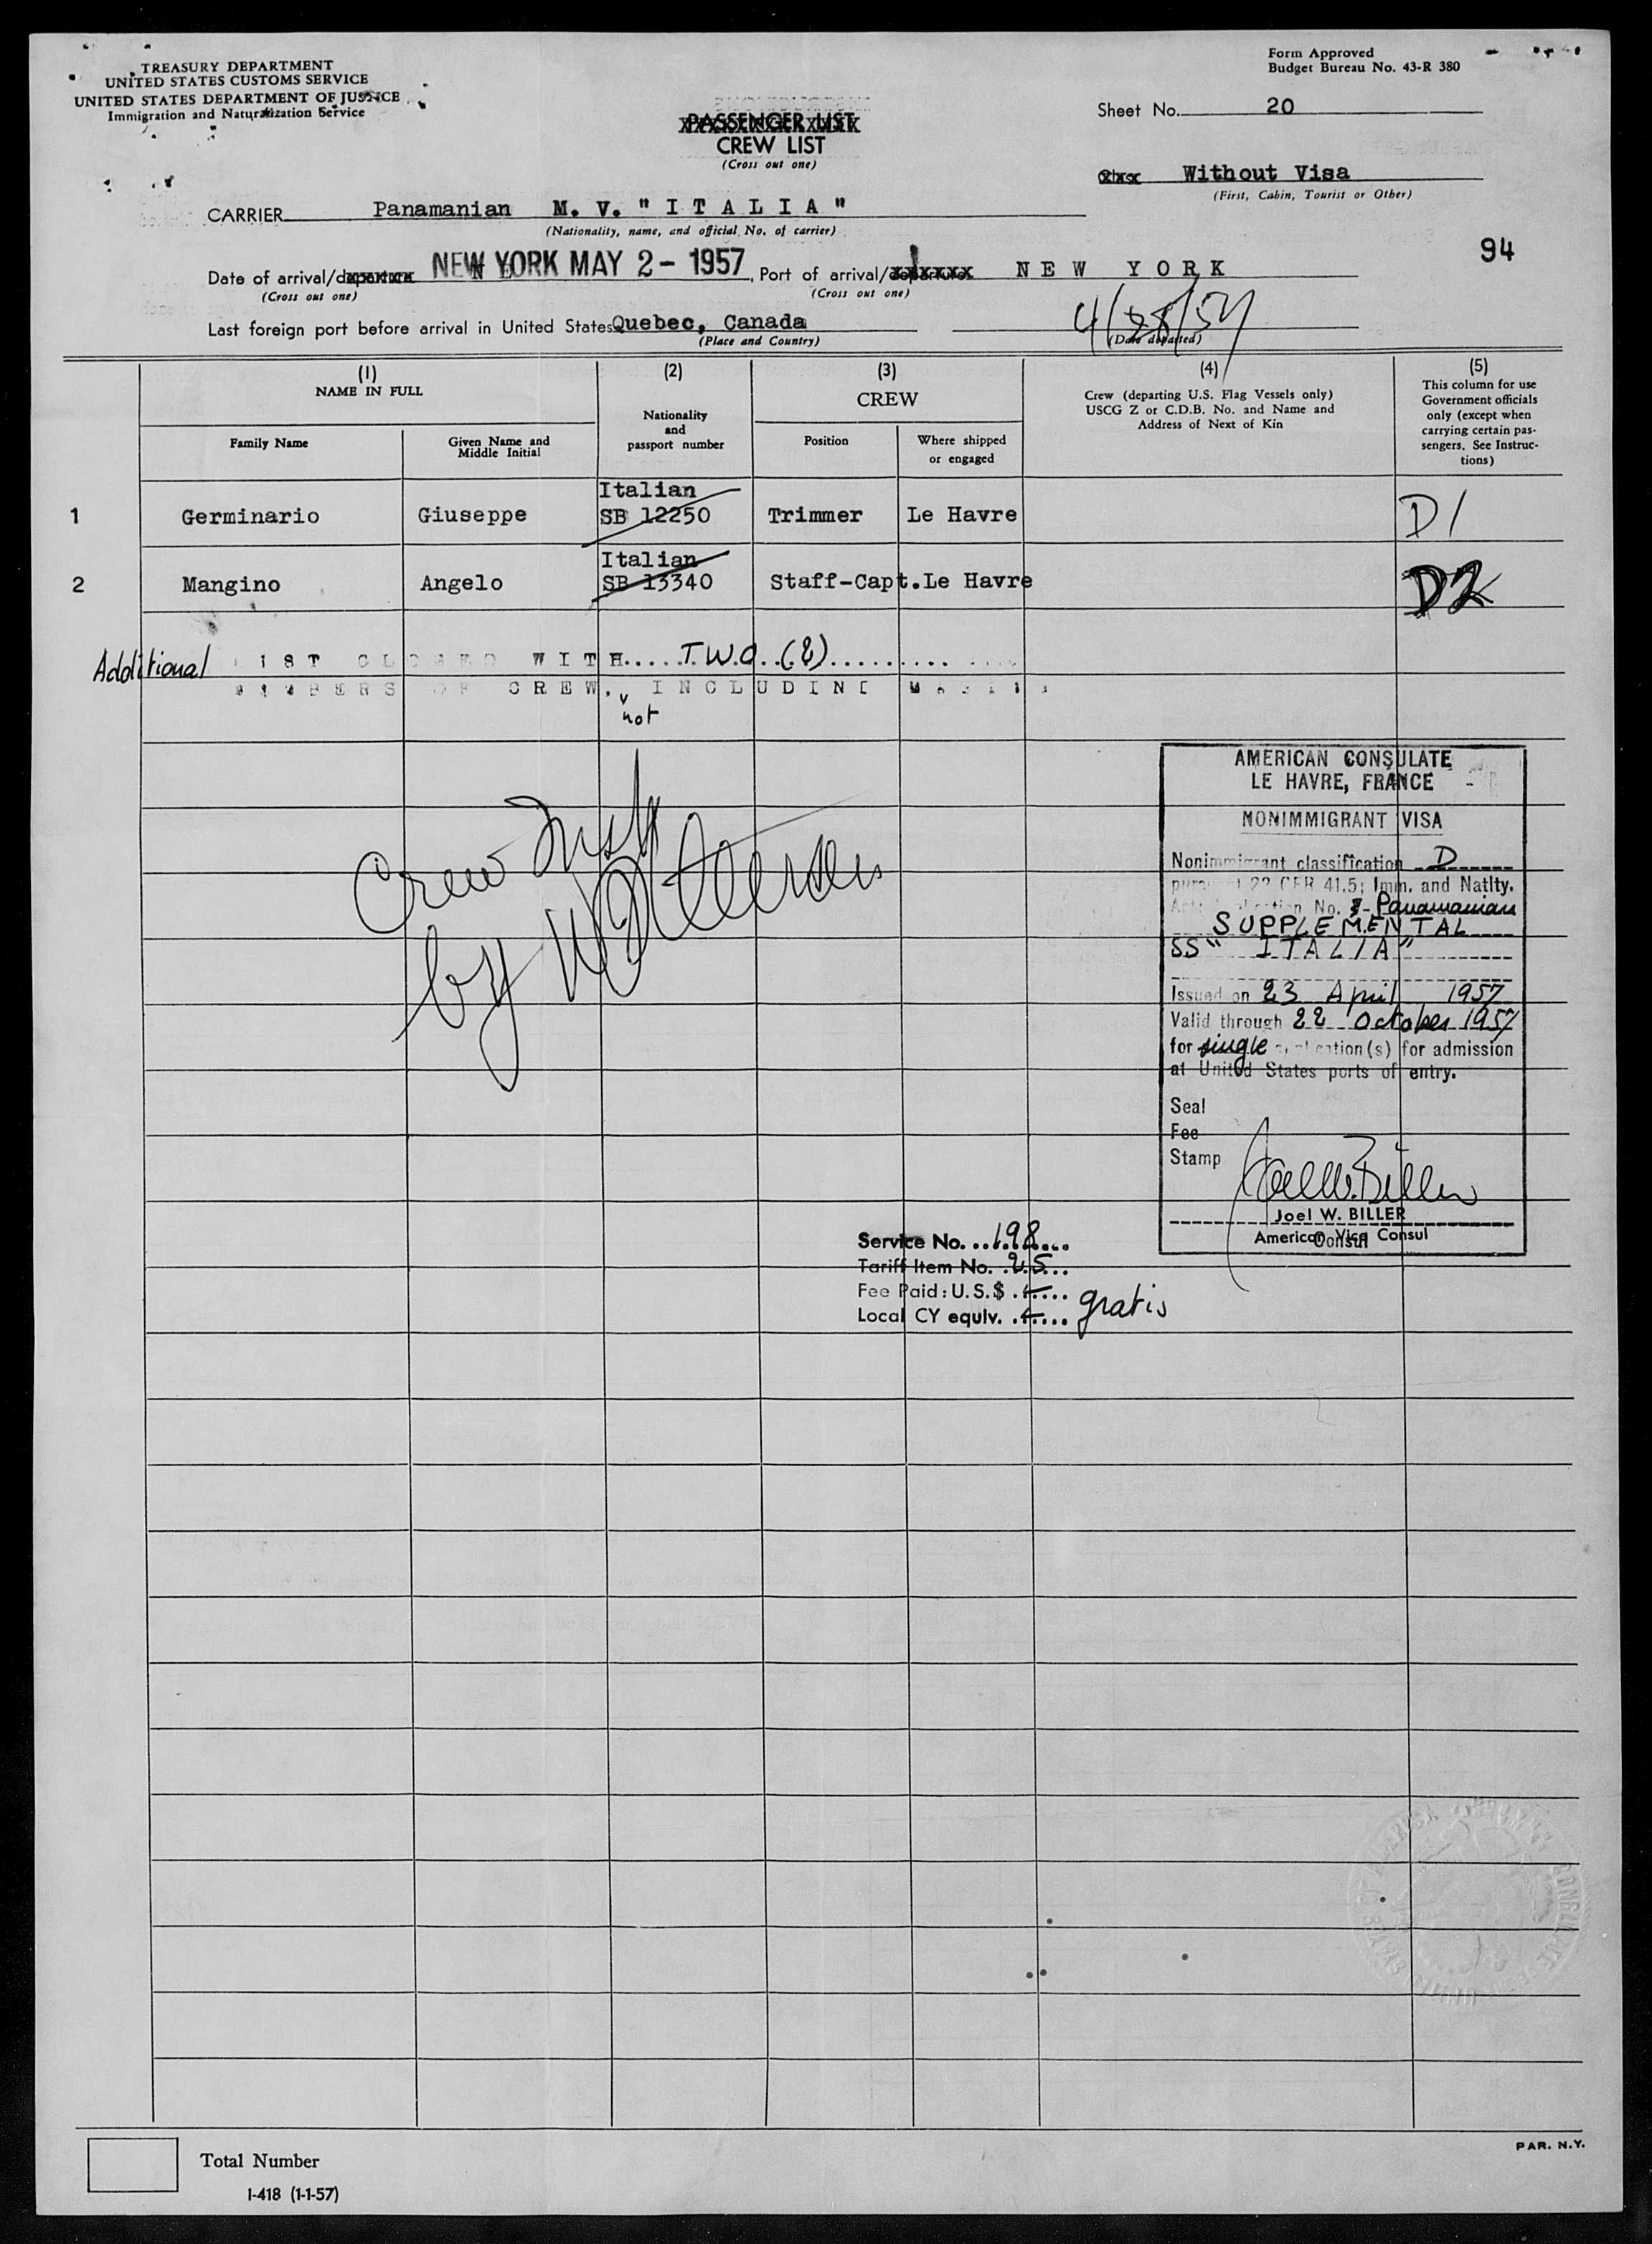 TREASURY DEPARTMENT
UNITED STATES CUSTOMS SERVICE
UNITED STATES DEPARTMENT OF JUSTICE
Immigration and Naturalization Service
Form Approved
Budget Bureau No. 43-R 380
Sheet No. 20
PASSENGER LIST
CREW LIST
(Cross out one)
Without Visa
(First, Cabin, Tourist or Other)
CARRIER Panamanian M. V. "ITALIA"
(Nationality, name, and official No. of carrier)
94
Date of arrival/departure NEW YORK MAY 2 - 1957, Port of arrival/departure NEW YORK
(Cross out one) (Cross out one)
Last foreign port before arrival in United States Quebec, Canada 4/28/57
(Place and Country) (Date departed)
(1) (2) (3) (4) (5)
NAME IN FULL
Nationality and passport number
CREW
Crew (departing U.S. Flag Vessels only)
USCG Z or C.D.B. No. and Name and
Address of Next of Kin
This column for use
Government officials
only (except when
carrying certain pas-
sengers. See Instruc-
tions)
Family Name Given Name and Middle Initial Position Where shipped or engaged
1 Germinario Giuseppe Italian SB 12250 Trimmer Le Havre D1
2 Mangino Angelo Italian SB 13340 Staff-Capt. Le Havre D2
Additional LIST CLOSED WITH..... T.W.O. (2)..........
MEMBERS OF CREW, INCLUDING MASTER
not
Crew
by
AMERICAN CONSULATE
LE HAVRE, FRANCE
NONIMMIGRANT VISA
Nonimmigrant classification D
pursuant 22 CFR 41.5; Imm. and Natlty.
No. Panamanian
SUPPLEMENTAL
SS " ITALIA"
Issued on 23 April 1957
Valid through 22 October 1957
for single application(s) for admission
at United States ports of entry.
Seal
Fee
Stamp
Joel W. Biller
Joel W. BILLER
American Vice Consul
Consul
Service No. ..198....
Tariff Item No. .25...
Fee Paid: U.S.$
Local CY equiv.
gratis
Total Number
I-418 (1-1-57)
PAR. N.Y.